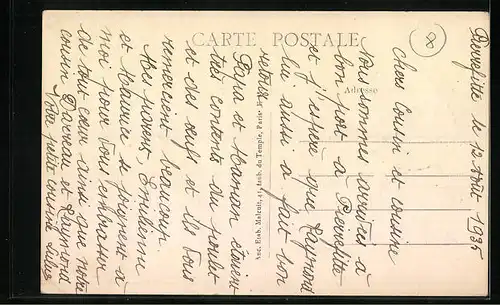 Pierrefitte le 12 Août 1935
Chers Cousin et cousine
Nous sommes arrivés à
bon port à Pierrefitte
et j'espère que Raymond
lui aussi a fait bon
retour
Papa et Maman étaient
très contents du poulet
et des œufs et ils vous
remercient beaucoup.
Mes parents, Emilienne
et Maurice se joignent à
moi pour vous embrasser
de tout cœur ainsi que notre
cousin et Raymond
Votre petite cousine
CARTE POSTALE
Adresse
Anc. Etab. Malcuit, 41, faub. du Temple, Paris